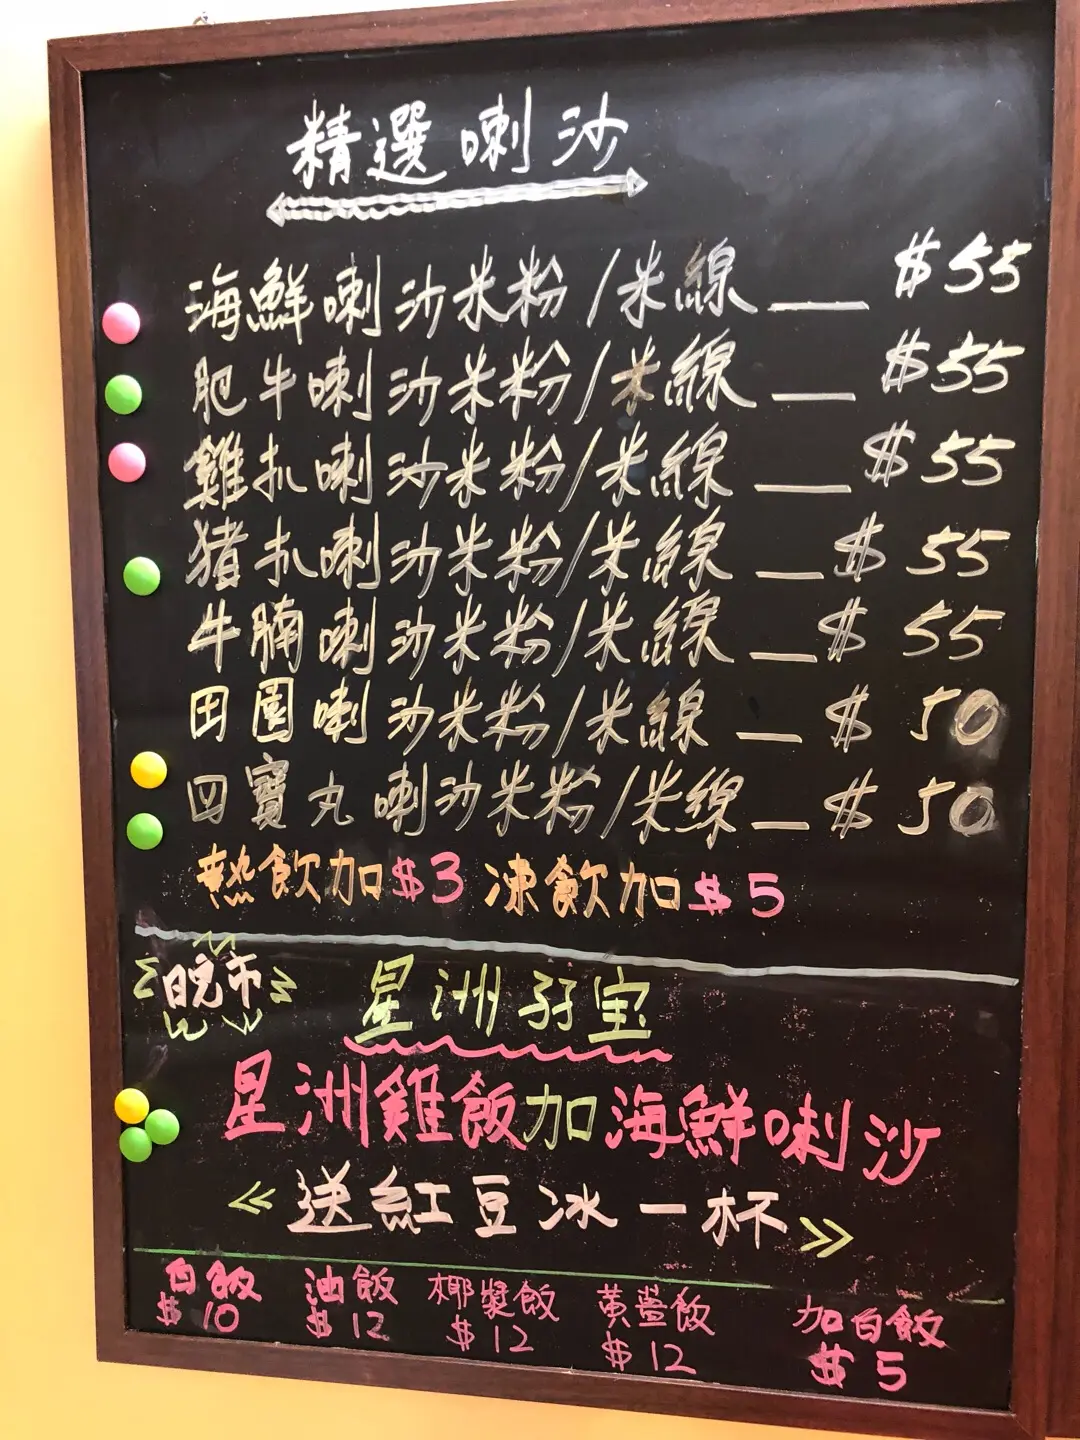 精選喇沙
海鮮喇沙米粉/米線__$55
肥牛喇沙米粉/米線__$55
雞扒喇沙米粉/米線__$55
猪扒喇沙米粉/米線__$55
牛腩喇沙米粉/米線__$55
田園喇沙米粉/米線__$50
四寶丸喇沙米粉/米線__$50
熱飲加$3 凍飲加$5
晚市 星洲孖宝
星洲雞飯加海鮮喇沙
《送紅豆冰一杯》
白飯 油飯 椰漿飯 黃薑飯 加白飯
$10 $12 $12 $12 $5